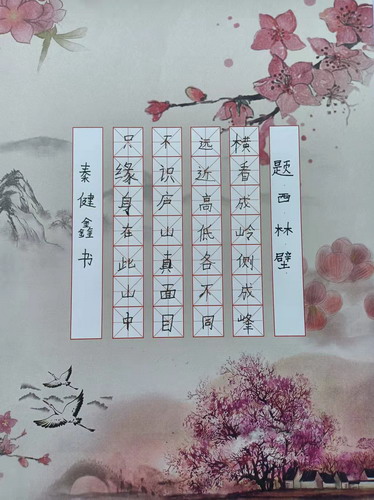 题西林壁
横看成岭侧成峰
远近高低各不同
不识庐山真面目
只缘身在此山中
秦健鑫书